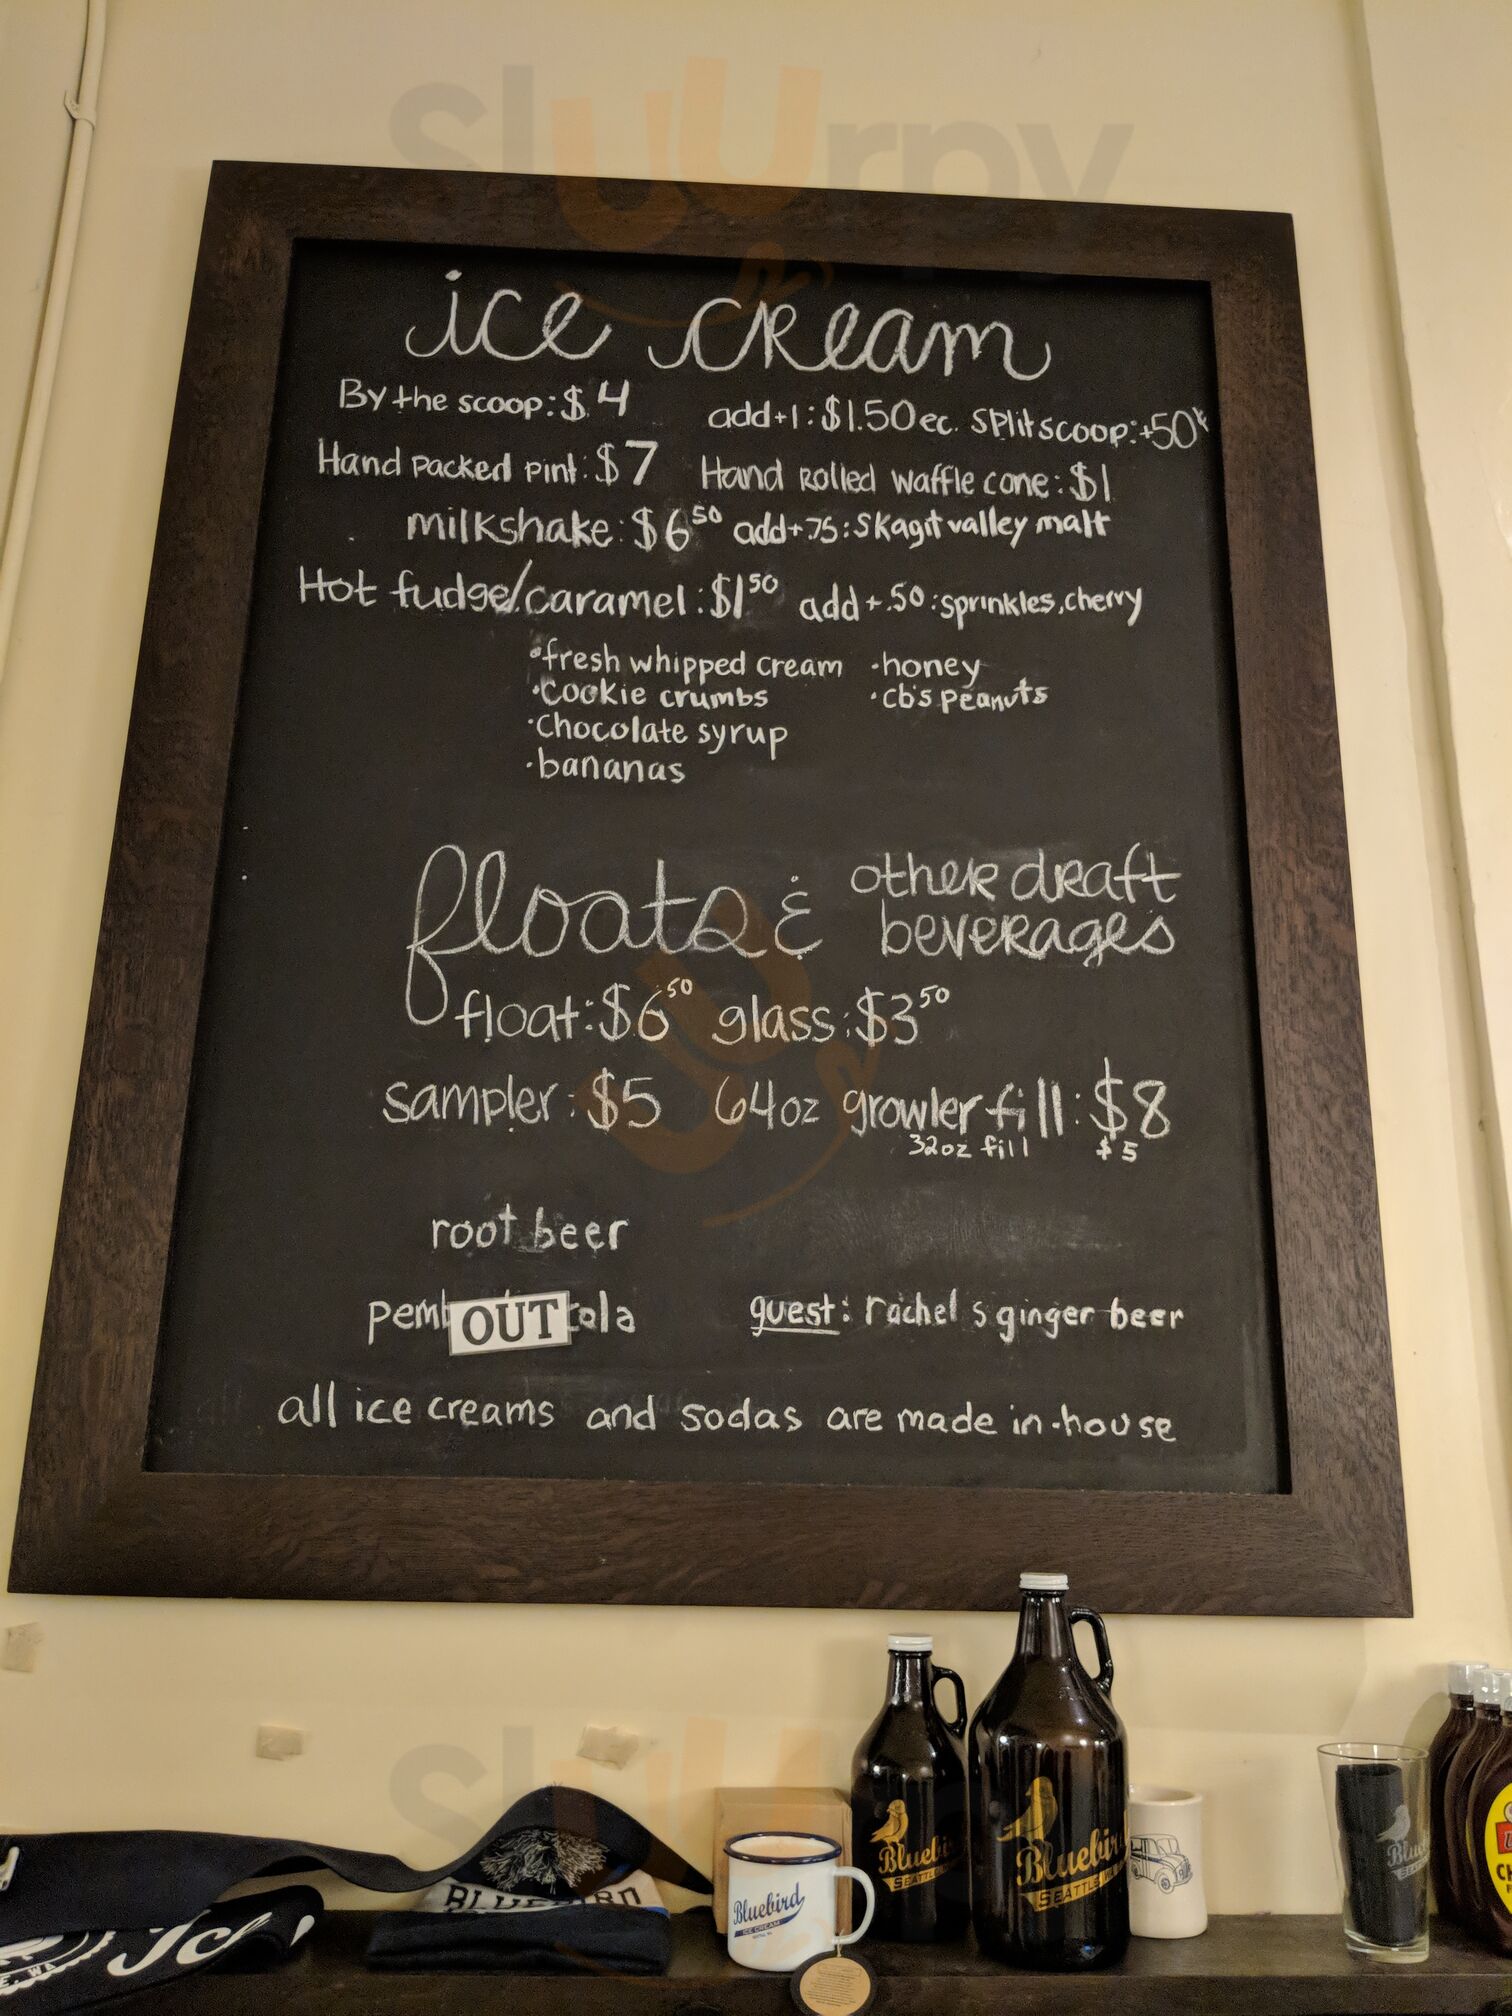 sluurpy
ice cream
By the scoop: $4 add+1: $1.50 ec. split scoop: +50¢
Hand packed pint: $7 Hand Rolled waffle cone: $1
milkshake: $6 50 add+.75: Skagit valley malt
Hot fudge/caramel: $1 50 add +.50: sprinkles, cherry
•fresh whipped cream •honey
•Cookie crumbs •cb's peanuts
•Chocolate syrup
•bananas
floats & other draft beverages
float: $6 50 glass: $3 50
sampler: $5 64oz growler fill: $8
32oz fill $5
root beer
OUT cola guest: rachel s ginger beer
all ice creams and sodas are made in-house
sluurpy
BLUEBIRD
Bluebird
ICE CREAM
Bluebird
SEATTLE
Bluebird
SEATTLE
Bluebird